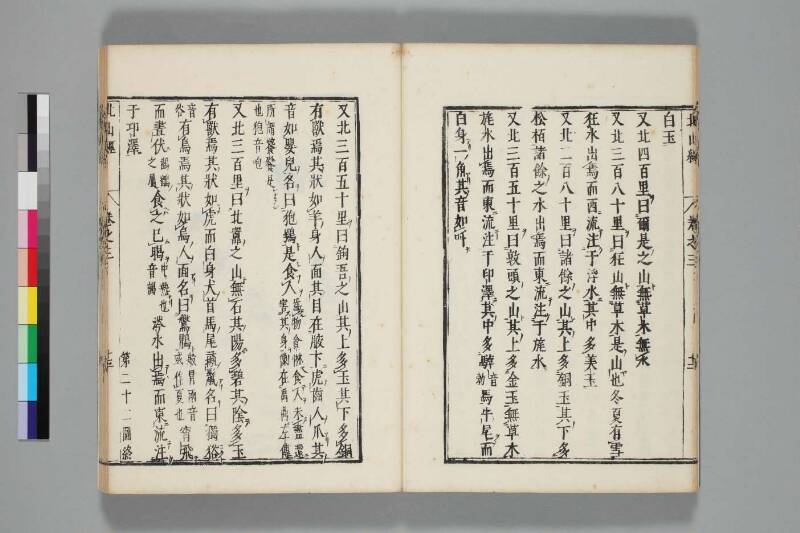 北山經
卷之三
白玉
又北四百里曰爾是之山無草木無水
又北三百八十里曰狂山無草木是山也冬夏有雪
狂水出焉而西流注于浮水其中多美玉
又北二百八十里曰諸餘之山其上多銅玉其下多
松栢諸餘之水出焉而東流注于旄水
又北三百五十里曰敦頭之山其上多金玉無草木
旄水出焉而東流注于印澤其中多䮀馬牛尾而
音勃
白身一角其音如呼
又北三百五十里曰鉤吾之山其上多玉其下多銅
有獸焉其狀如羊身人面其目在腋下虎齒人爪其
音如嬰兒名曰狍鴞是食人
為物貪惏食人未盡還害其身像在禹鼎左傳
所謂饕餮是
也狍音咆
又北三百里曰北嚻之山無石其陽多碧其陰多玉
有獸焉其狀如虎而白身犬首馬尾彘鬣名曰獨𤞞
音谷
有鳥焉其狀如烏人面名曰鷔鶥
或作夏也
宵飛
而晝伏
之屬
食之已暍
音謁
涔水出焉而東流注
于印澤
第二十二圖終
北山經
卷之三